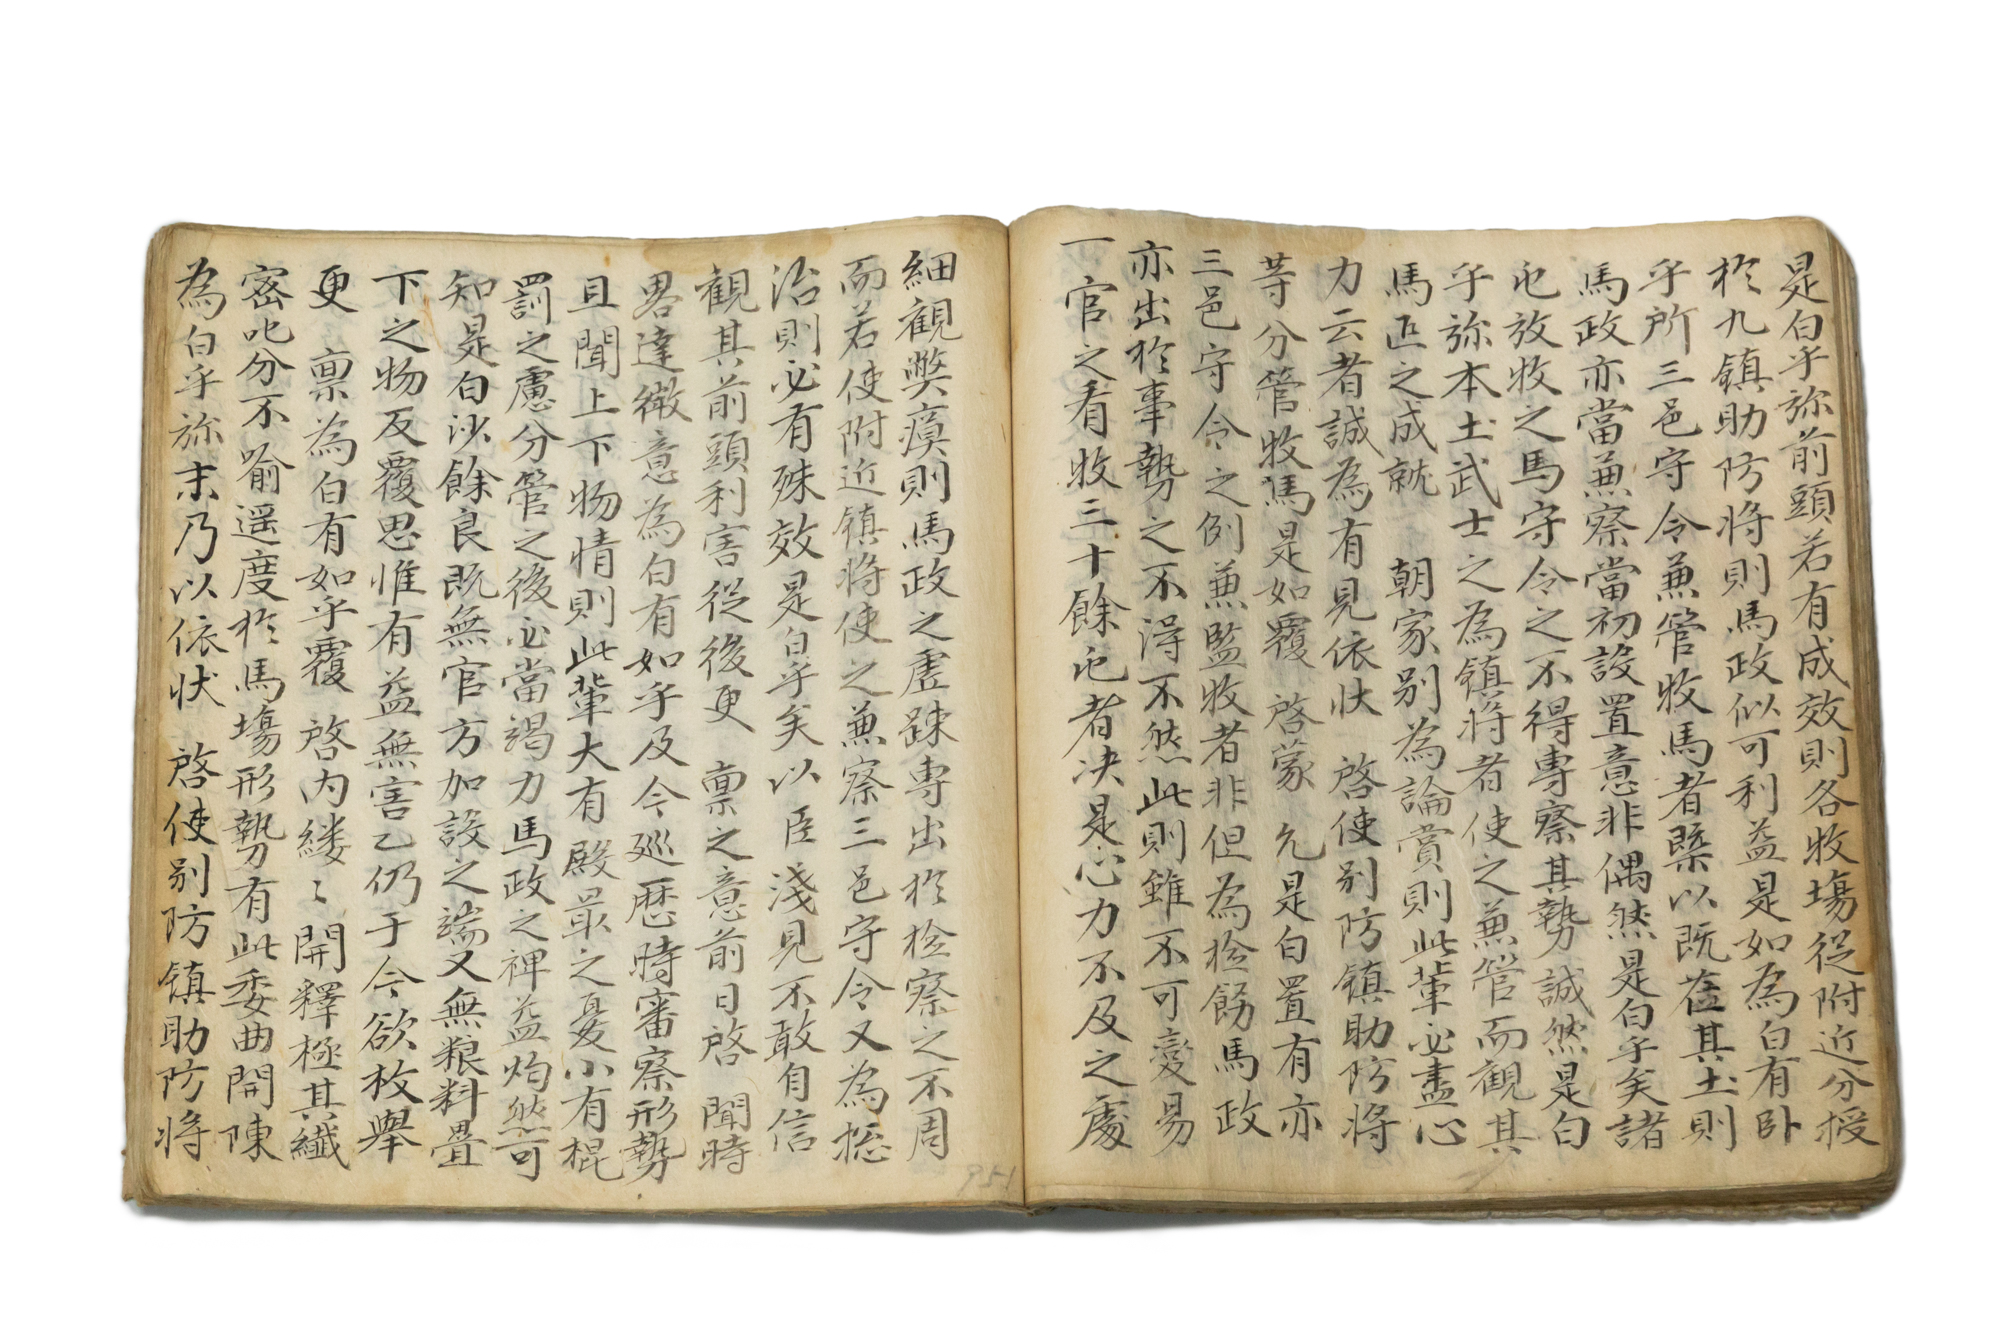 是白乎弥前頭若有成效則各牧塲從附近分授
於九鎮助防将則馬政似可利益是如為白有卧
乎所三邑守令兼管牧馬者槩以既莅其土則
馬政亦當兼察當初設置意非偶然是白乎矣諸
屯放牧之馬守令之不得專察其勢誠然是白
乎弥本土武士之為鎮将者使之兼管而觀其
馬匹之成就 朝家别為論賞則此輩必盡心
力云者誠為有見依状 啓使别防鎮助防将
等分管牧馬是如覆 啓蒙 允是白置有亦
三邑守令之例兼監牧者非但為檢飭馬政
亦出於事勢之不得不然此則雖不可變易
一官之看牧三十餘屯者决是心力不及之處
細觀弊瘼則馬政之虛踈專出於檢察之不周
而若使附近鎮将使之兼察三邑守令又為揔
治則必有殊效是白乎矣以臣淺見不敢自信
觀其前頭利害從後更 禀之意前日啓 聞時
畧達微意為白有如乎及今廵歷時審察形勢
且聞上下物情則此輩大有殿最之憂小有棍
罰之慮分管之後必當竭力馬政之裨益灼然可
知是白沙餘良既無官方加設之端又無粮料疊
下之物反覆思惟有益無害乙仍于今欲枚舉
更 禀為白有如乎覆 啓内縷〻開釋極其纖
密叱分不喻遥度於馬塲形勢有此委曲開陳
為白乎弥末乃以依状 啓使别防鎮助防将
951